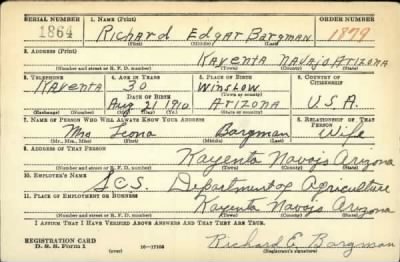 SERIAL NUMBER 1. NAME (Print) ORDER NUMBER
1864 Richard Edgar Bargman 1879
(First) (Middle) (Last)
2. ADDRESS (Print)
Kayenta Navajo Arizona
(Number and street or R. F. D. number) (Town) (County) (State)
3. TELEPHONE 4. AGE IN YEARS 5. PLACE OF BIRTH 6. COUNTRY OF CITIZENSHIP
Kayenta 30 Winslow
DATE OF BIRTH (Town or county)
Aug 21 1910 Arizona U.S.A.
(Exchange) (Number) (Mo.) (Day) (Yr.) (State or country)
7. NAME OF PERSON WHO WILL ALWAYS KNOW YOUR ADDRESS 8. RELATIONSHIP OF THAT PERSON
Mrs Leona Bargman Wife
(Mr., Mrs., Miss) (First) (Middle) (Last)
9. ADDRESS OF THAT PERSON
Kayenta Navajo Arizona
(Number and street or R. F. D. number) (Town) (County) (State)
10. EMPLOYER'S NAME
S.C.S. Department of Agriculture
11. PLACE OF EMPLOYMENT OR BUSINESS
Kayenta Navajo Arizona
(Number and street or R. F. D. number) (Town) (County) (State)
I AFFIRM THAT I HAVE VERIFIED ABOVE ANSWERS AND THAT THEY ARE TRUE.
REGISTRATION CARD Richard E Bargman
D. S. S. Form 1 (over) 16-17105 (Registrant's signature)